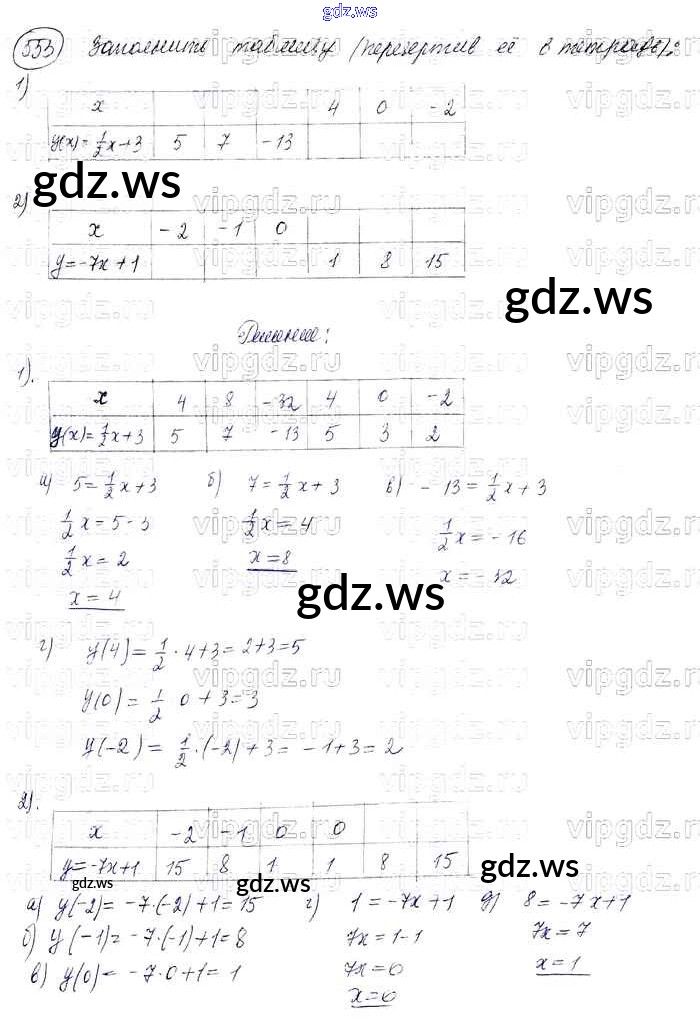 gdz.ws
553 Заполнить таблицу (перечертив её в тетрадь):
1)
x 4 0 -2
y(x)=1/2x+3 5 7 -13
gdz.ws
2)
x -2 -1 0
y=-7x+1 1 8 15
gdz.ws
Решение:
1).
x 4 8 -32 4 0 -2
y(x)=1/2x+3 5 7 -13 5 3 2
а) 5=1/2x+3 б) 7=1/2x+3 в) -13=1/2x+3
1/2x=5-3 1/2x=4 1/2x=-16
1/2x=2 x=8 x=-32
x=4
gdz.ws
г) y(4)=1/2·4+3=2+3=5
y(0)=1/2 0+3=3
y(-2)=1/2·(-2)+3=-1+3=2
2).
x -2 -1 0 0
y=-7x+1 15 8 1 1 8 15
gdz.ws gdz.ws
а) y(-2)=-7·(-2)+1=15 г) 1=-7x+1 д) 8=-7x+1
б) y(-1)=-7·(-1)+1=8 7x=1-1 7x=7
в) y(0)=-7·0+1=1 7x=0 x=1
x=0
gdz.ws
vipgdz.ru